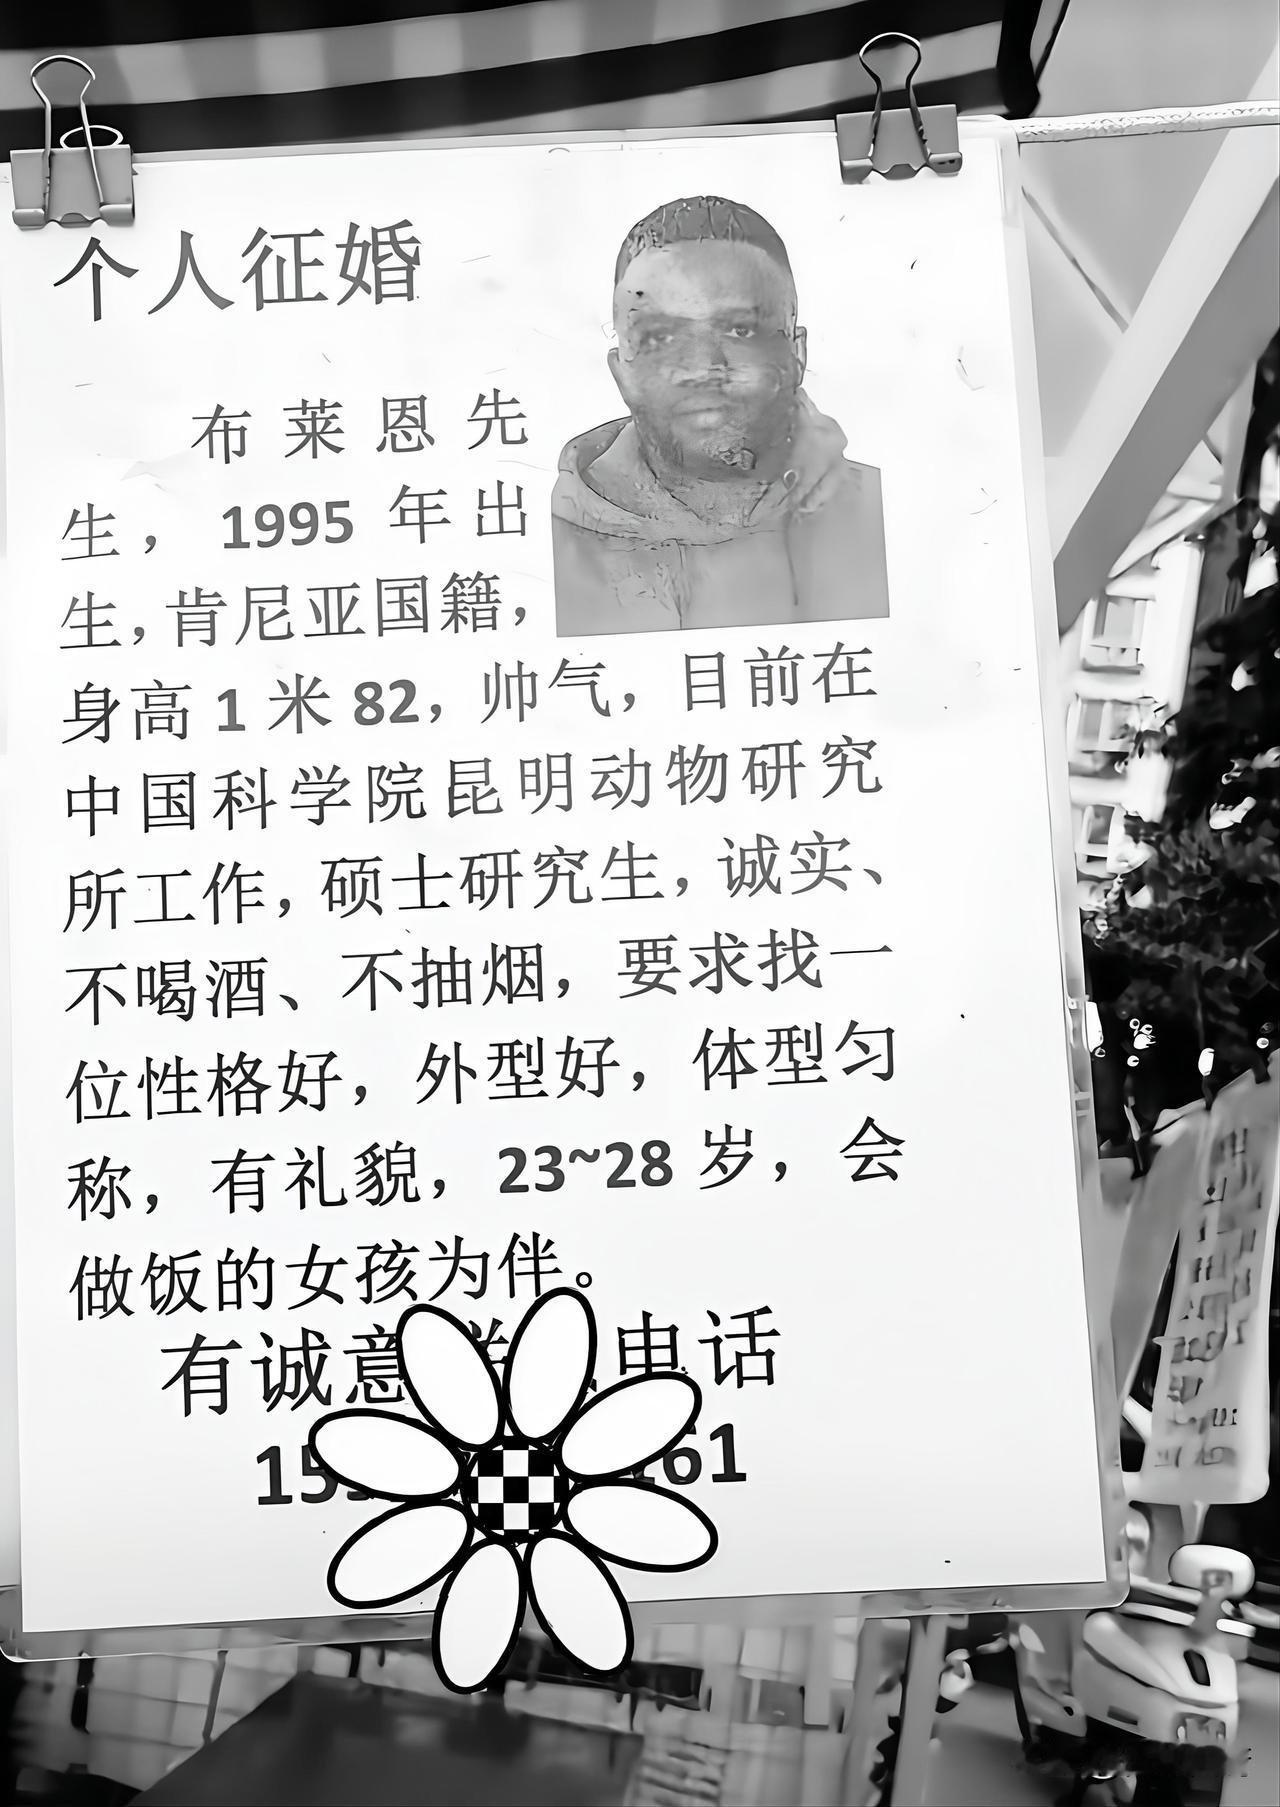 个人征婚
布莱恩先
生，1995年出
生，肯尼亚国籍，
身高1米82，帅气，目前在
中国科学院昆明动物研究
所工作，硕士研究生，诚实、
不喝酒、不抽烟，要求找一
位性格好，外型好，体型匀
称，有礼貌，23~28岁，会
做饭的女孩为伴。
有诚意 电话
15 161